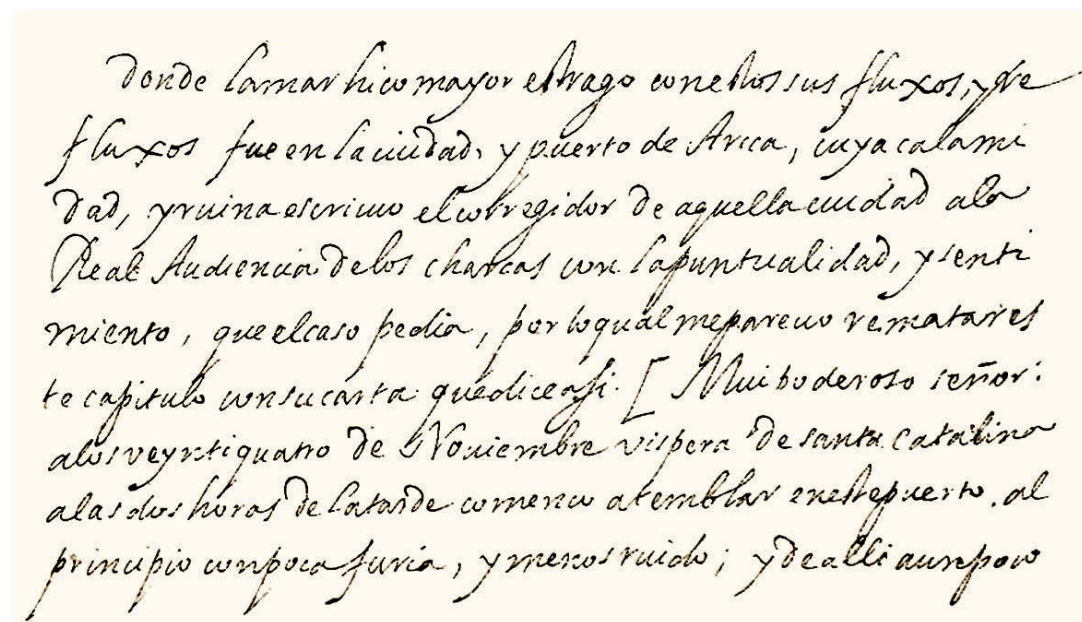 donde lamar hiço mayor estrago con estos sus fluxos, y re
fluxos fue en la ciudad, y puerto de Arica, cuya calami
dad, y ruina escriuio el corregidor de aquella ciudad ala
Real Audiencia delos charcas con la puntualidad, y senti
miento, que el caso pedia, por lo qual me parecio rematar es
te capitulo con su carta que dice assi. [ Mui poderoso señor:
alos veyntiquatro de Nouiembre vispera de santa Catalina
alas dos horas de la tarde començo a temblar en este puerto. al
principio con poca furia, y menos ruido; y de alli a un poco